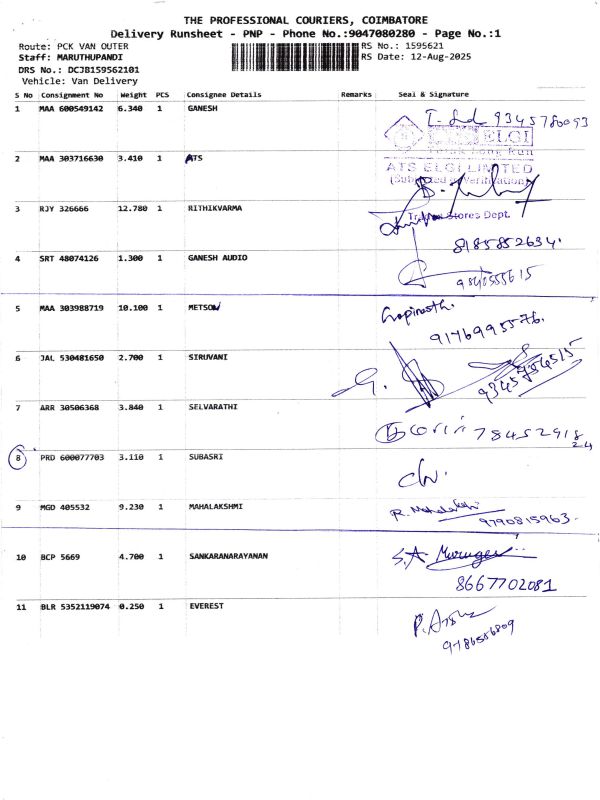 THE PROFESSIONAL COURIERS, COIMBATORE
Delivery Runsheet - PNP - Phone No.:9047080280 - Page No.:1
Route: PCK VAN OUTER RS No.: 1595621
Staff: MARUTHUPANDI RS Date: 12-Aug-2025
DRS No.: DCJB159562101
Vehicle: Van Delivery
S No Consignment No Weight PCS Consignee Details Remarks Seal & Signature
1 MAA 600549142 6.340 1 GANESH
9345780093
ELGI
2 MAA 303716630 3.410 1 ATS
ATS ELGI LIMITED
3 RJY 326666 12.780 1 RITHIKVARMA
Stores Dept.
8185852634.
4 SRT 48074126 1.300 1 GANESH AUDIO
5 MAA 303988719 10.100 1 METSOW
Gopinath.
9176995576.
6 JAL 530481650 2.700 1 SIRUVANI
7 ARR 30506368 3.840 1 SELVARATHI
8 PRD 600077703 3.110 1 SUBASRI
9 MGD 405532 9.230 1 MAHALAKSHMI
9790815963.
10 BCP 5669 4.700 1 SANKARANARAYANAN
S.A. Murugesan
8667702081
11 BLR 5352119074 0.250 1 EVEREST